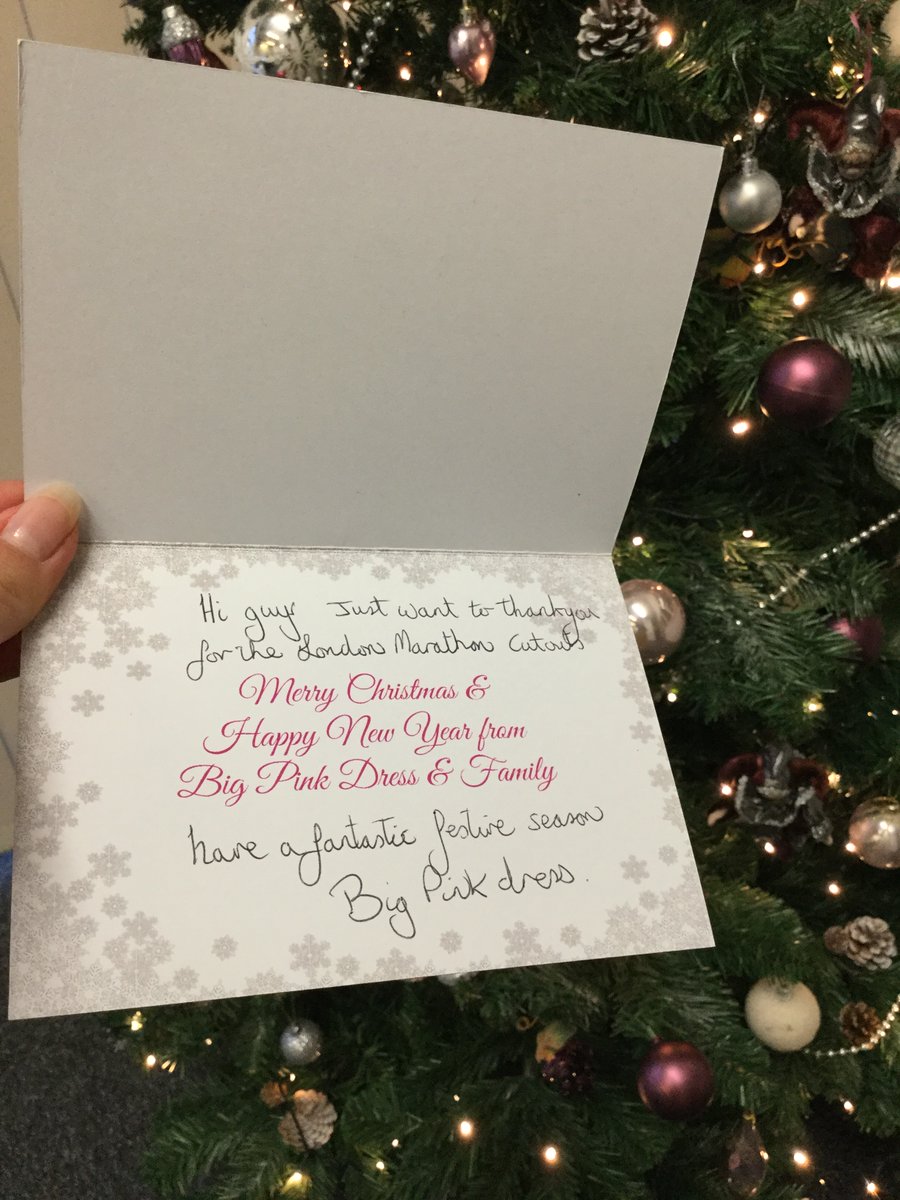 Hi guys Just want to thankyou
for the London Marathon Cutouts
Merry Christmas &
Happy New Year from
Big Pink Dress & Family
have a fantastic festive season
Big Pink dress.